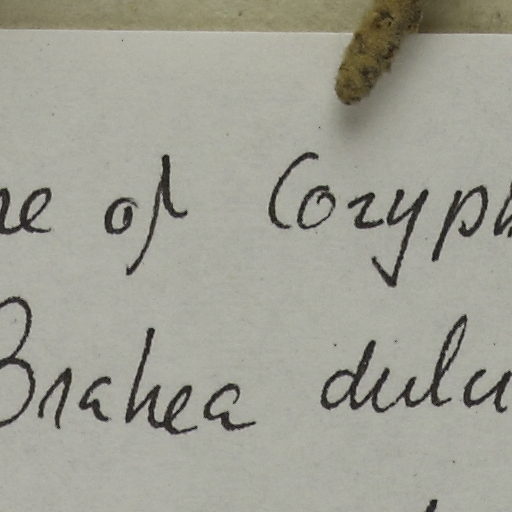 re of Coryph
Brahea dulci